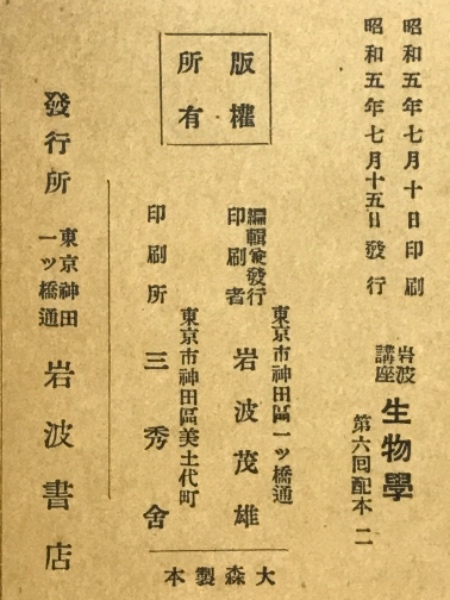 昭和五年七月十日印刷
昭和五年七月十五日發行
岩波
講座
生物學
第六回配本 二
版權
所有
東京市神田區一ツ橋通
編輯兼發行
印刷者
岩波茂雄
東京市神田區美土代町
印刷所 三秀舍
大森製本
發行所
東京神田
一ツ橋通
岩波書店